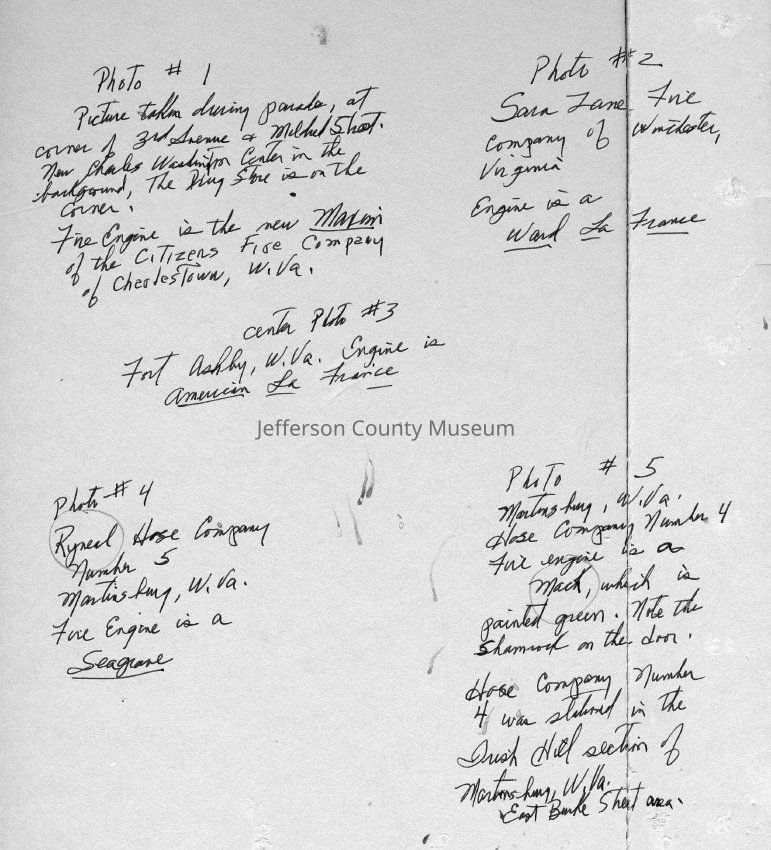 Photo # 1
Picture taken during parade, at
corner of 3rd Avenue & Mildred Street.
New Charles Washington Center in the
background, The Drug Store is on the
Corner.
Fire Engine is the new Maxim
of the Citizens Fire Company
of Charlestown, W.Va.
Photo # 2
Sara Zane Fire
Company of Winchester,
Virginia
Engine is a
Ward La France
center Photo #3
Fort Ashby, W.Va. Engine is
American La France
Jefferson County Museum
Photo # 4
Ryneal Hose Company
Number 5
Martinsburg, W.Va.
Fire Engine is a
Seagrave
Photo # 5
Martinsburg, W.Va.
Hose Company Number 4
Fire engine is a
Mack, which is
painted green. Note the
Shamrock on the door.
Hose Company Number
4 was stationed in the
Irish Hill section of
Martinsburg, W.Va.
East Burke Street area.